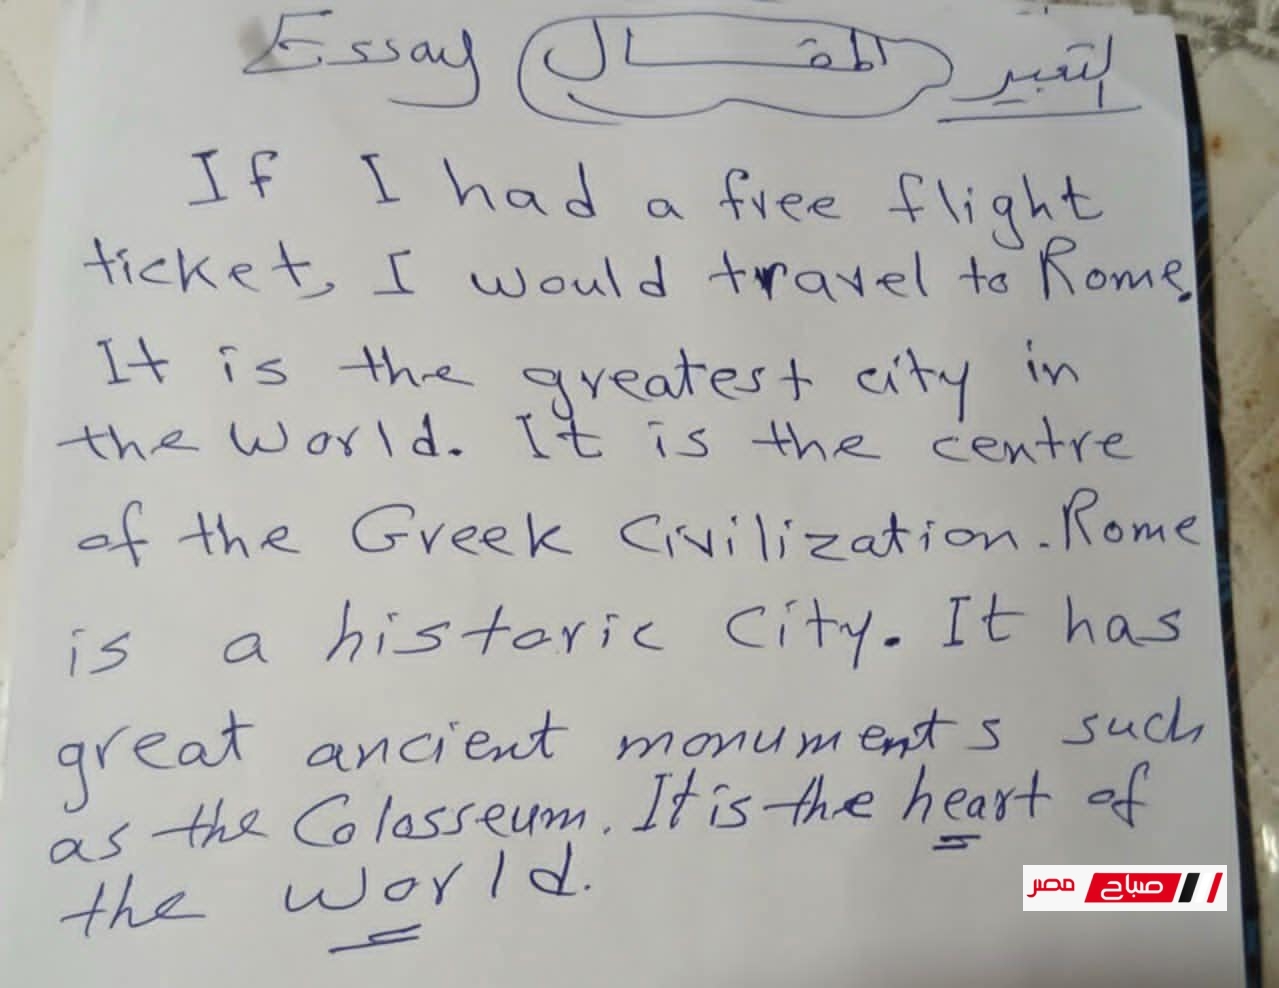 Essay المقال التعبير
If I had a free flight
ticket, I would travel to Rome.
It is the greatest city in
the World. It is the centre
of the Greek Civilization. Rome
is a historic City. It has
great ancient monuments such
as the Colosseum. It is the heart of
the World.
صباح مصر